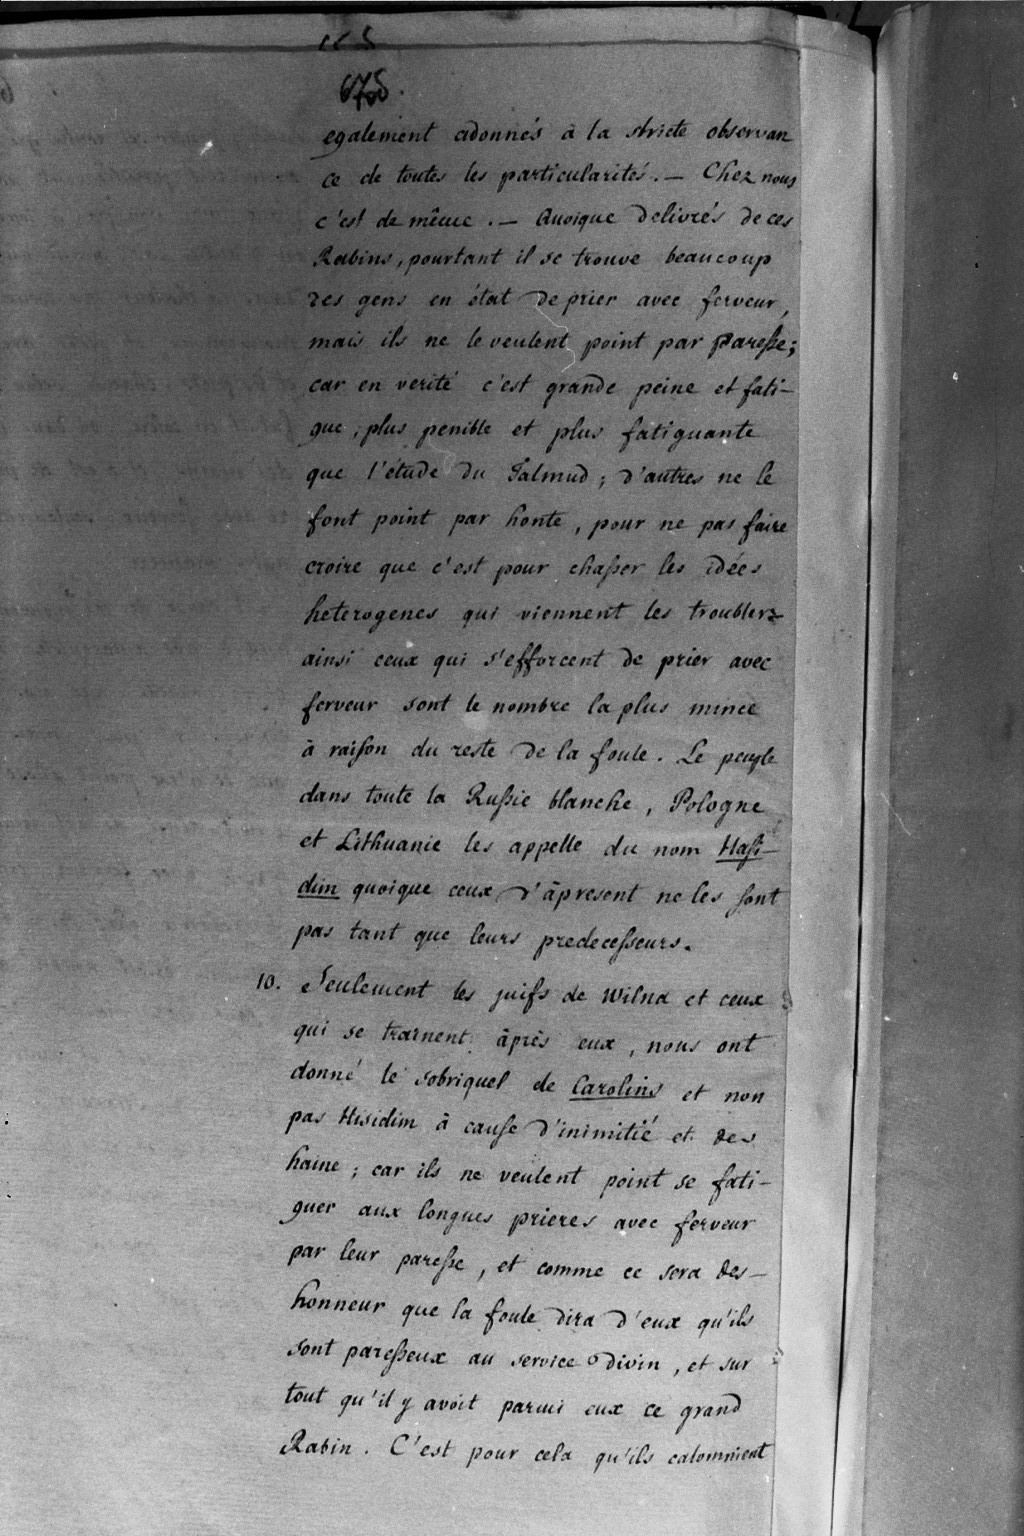 egalement adonnés à la stricte observan
ce de toutes les particularités. — Chez nous
c'est de même. — Quoique delivrés de ces
Rabins, pourtant il se trouve beaucoup
des gens en état de prier avec ferveur,
mais ils ne le veulent point par paresse;
car en verité c'est grande peine et fati-
gue, plus penible et plus fatiguante
que l'étude du Talmud; d'autres ne le
font point par honte, pour ne pas faire
croire que c'est pour chasser les idées
heterogenes qui viennent les troubler
ainsi ceux qui s'efforcent de prier avec
ferveur sont le nombre la plus mince
à raison du reste de la foule. Le peuple
dans toute la Russie blanche, Pologne
et Lithuanie les appelle du nom Hasi-
dim quoique ceux d'àpresent ne les sont
pas tant que leurs predecesseurs.
10. Seulement les juifs de Wilna et ceux
qui se trainent àprès eux, nous ont
donné le sobriquel de Carolins et non
pas Hisidim à cause d'inimitié et des
haine; car ils ne veulent point se fati-
guer aux longues prieres avec ferveur
par leur paresse, et comme ce sera des-
honneur que la foule dira d'eux qu'ils
sont paresseux au service divin, et sur
tout qu'il y avoit parmi eux ce grand
Rabin. C'est pour cela qu'ils calomnient